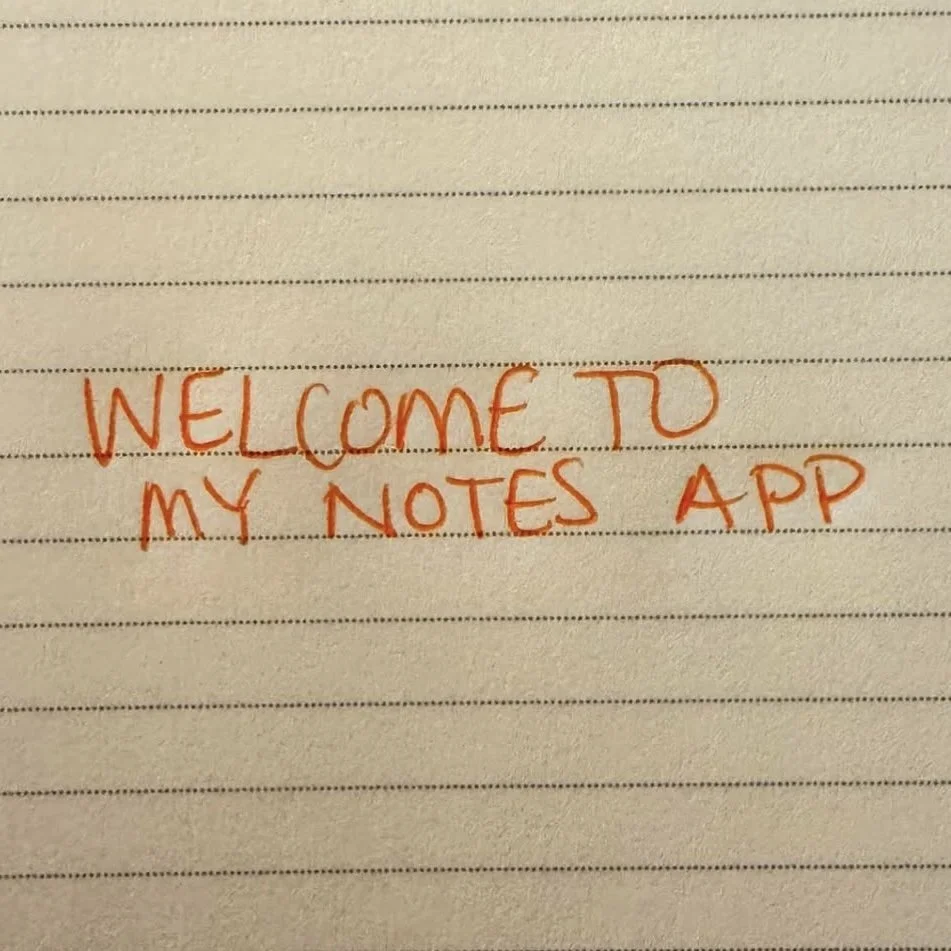 WELCOME TO
MY NOTES APP